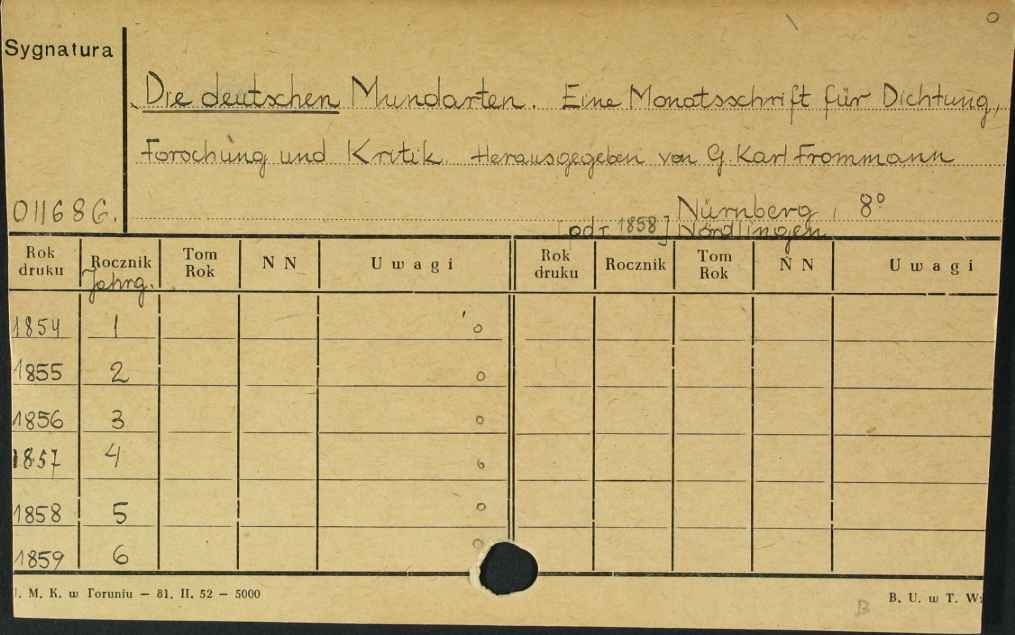 Sygnatura
Die deutschen Mundarten. Eine Monatsschrift für Dichtung,
Forschung und Kritik. Herausgegeben von G. Karl Frommann
011686. Nürnberg, 8°
[od r. 1858] Nördlingen
Rok druku Rocznik Tom Rok N N Uwagi Rok druku Rocznik Tom Rok N N Uwagi
Jahrg.
1854 1 o
1855 2 o
1856 3 o
1857 4 o
1858 5 o
1859 6 o
M. K. w Toruniu — 81. II. 52 — 5000 B. U. w T. W
B